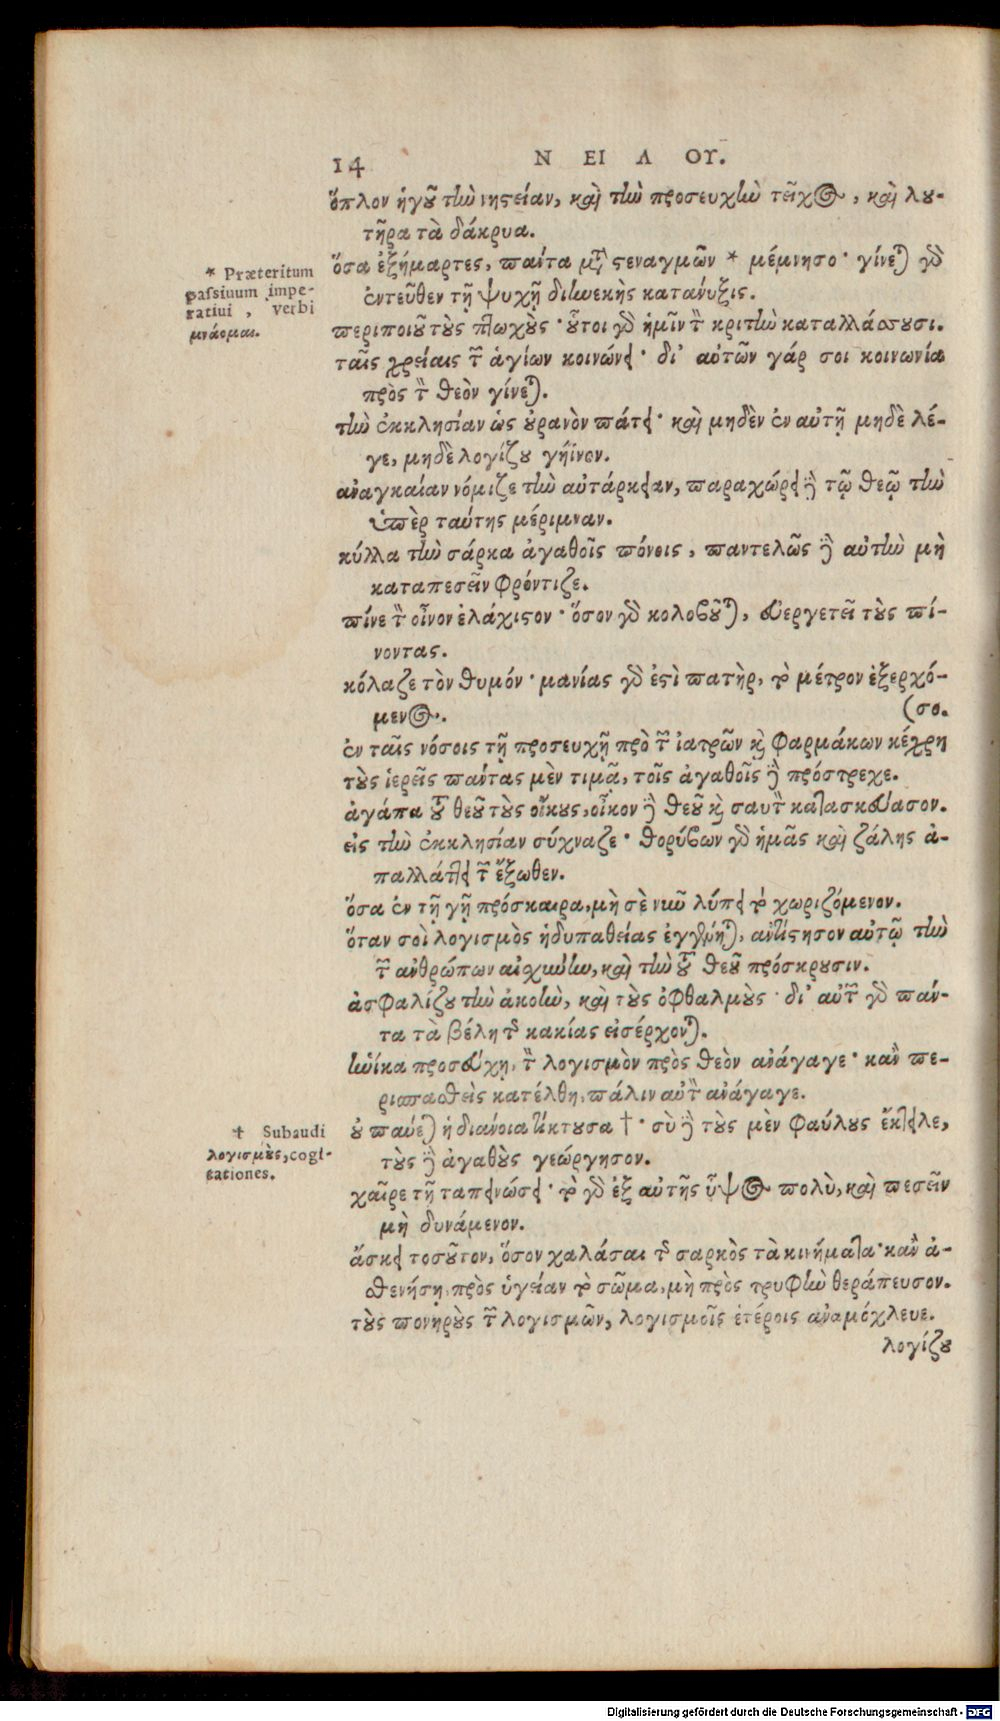 14 ΝΕΙΛΟΥ.
ὅπλον ἡγοῦ τὴν νηστείαν, καὶ τὴν προσευχὴν τεῖχος, καὶ λου-
τῆρα τὰ δάκρυα.
ὅσα ἐξήμαρτες, πάντα μετὰ στεναγμῶν * μέμνησο· γίνεται γὰρ
ἐντεῦθεν τῇ ψυχῇ διηνεκὴς κατάνυξις.
* Præteritum
passiuum impe-
ratiui, verbi
μνάομαι.
περιποιοῦ τοὺς πτωχοὺς· οὗτοι γὰρ ἡμῖν τὸν κριτὴν καταλλάσσουσι.
ταῖς χρείαις τῶν ἁγίων κοινώνει· δι' αὐτῶν γάρ σοι κοινωνία
πρὸς τὸν θεὸν γίνεται.
τὴν ἐκκλησίαν ὡς οὐρανὸν πάτει· καὶ μηδὲν ἐν αὐτῇ μηδὲ λέ-
γε, μηδὲ λογίζου γήϊνον.
ἀναγκαίαν νόμιζε τὴν αὐτάρκειαν, παραχώρει δὲ τῷ θεῷ τὴν
ὑπὲρ ταύτης μέριμναν.
κύλλα τὴν σάρκα ἀγαθοῖς πόνοις, παντελῶς δὲ αὐτὴν μὴ
καταπεσεῖν φρόντιζε.
πίνε τὸν οἶνον ἐλάχιστον· ὅσον γὰρ κολοβοῦται, εὐεργετεῖ τοὺς πί-
νοντας.
κόλαζε τὸν θυμόν· μανίας γὰρ ἐστὶ πατὴρ, τὸ μέτρον ἐξερχό-
μενος. (σο.
ἐν ταῖς νόσοις τῇ προσευχῇ πρὸ τῶν ἰατρῶν καὶ φαρμάκων κέχρη
τοὺς ἱερεῖς πάντας μὲν τιμᾶ, τοῖς ἀγαθοῖς δὲ πρόστρεχε.
ἀγάπα τοῦ θεοῦ τοὺς οἴκους, οἶκον δὲ θεοῦ καὶ σαυτὸν κατασκεύασον.
εἰς τὴν ἐκκλησίαν σύχναζε· θορύβων γὰρ ἡμᾶς καὶ ζάλης ἀ-
παλλάττει τῶν ἔξωθεν.
ὅσα ἐν τῇ γῇ πρόσκαιρα, μὴ σὲ νῦν λύπει τὸ χωριζόμενον.
ὅταν σοὶ λογισμὸς ἡδυπαθείας ἐγγένηται, ἀντίστησον αὐτῷ τὴν
τῶν ἀνθρώπων αἰσχύνην, καὶ τὴν τοῦ θεοῦ πρόσκρουσιν.
ἀσφαλίζου τὴν ἀκοὴν, καὶ τοὺς ὀφθαλμοὺς· δι' αὐτῶν γὰρ πάν-
τα τὰ βέλη τῆς κακίας εἰσέρχονται.
ἡνίκα προσεύχῃ, τὸν λογισμὸν πρὸς θεὸν ἀνάγαγε· κἂν πε-
ρισπασθεὶς κατέλθῃ, πάλιν αὐτὸν ἀνάγαγε.
οὐ παύεται ἡ διάνοια τίκτουσα †· σὺ δὲ τοὺς μὲν φαύλους ἔκτιλε,
τοὺς δὲ ἀγαθοὺς γεώργησον.
† Subaudi
λογισμοὺς, cogi-
tationes.
χαῖρε τῇ ταπεινώσει· τὸ γὰρ ἐξ αὐτῆς ὕψος πολὺ, καὶ πεσεῖν
μὴ δυνάμενον.
ἄσκει τοσοῦτον, ὅσον χαλάσαι τῆς σαρκὸς τὰ κινήματα· κἂν ἀ-
σθενήσῃ, πρὸς ὑγείαν τὸ σῶμα, μὴ πρὸς τρυφὴν θεράπευσον.
τοὺς πονηροὺς τῶν λογισμῶν, λογισμοῖς ἑτέροις ἀναμόχλευε.
λογίζου
Digitalisierung gefördert durch die Deutsche Forschungsgemeinschaft - DFG